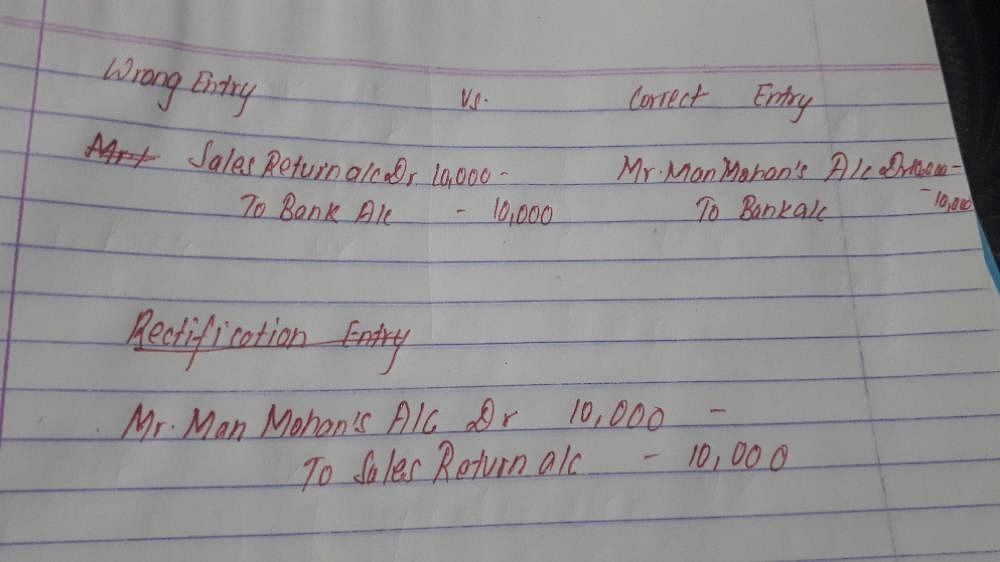 Wrong Entry Vs. Correct Entry
Sales Return a/c Dr 10,000 - Mr. Man Mohan's A/c Dr 10,000 -
To Bank A/c - 10,000 To Bank a/c - 10,000
Rectification Entry
Mr. Man Mohan's A/c Dr 10,000 -
To Sales Return a/c - 10,000